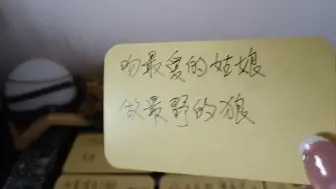 吻最爱的姑娘
做最野的狼